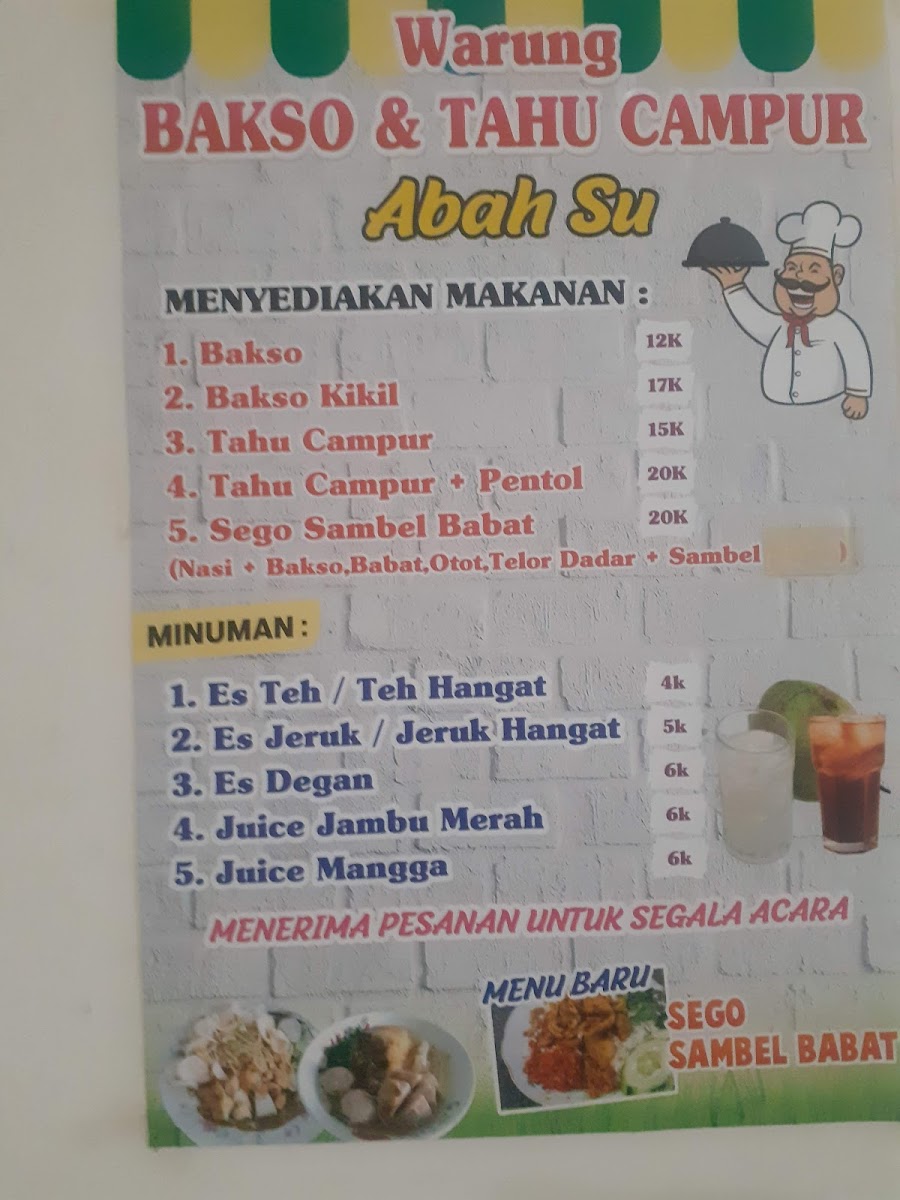 Warung
BAKSO & TAHU CAMPUR
Abah Su
MENYEDIAKAN MAKANAN :
1. Bakso 12K
2. Bakso Kikil 17K
3. Tahu Campur 15K
4. Tahu Campur + Pentol 20K
5. Sego Sambel Babat 20K
(Nasi + Bakso,Babat,Otot,Telor Dadar + Sambel )
MINUMAN :
1. Es Teh / Teh Hangat 4k
2. Es Jeruk / Jeruk Hangat 5k
3. Es Degan 6k
4. Juice Jambu Merah 6k
5. Juice Mangga 6k
MENERIMA PESANAN UNTUK SEGALA ACARA
MENU BARU
SEGO
SAMBEL BABAT